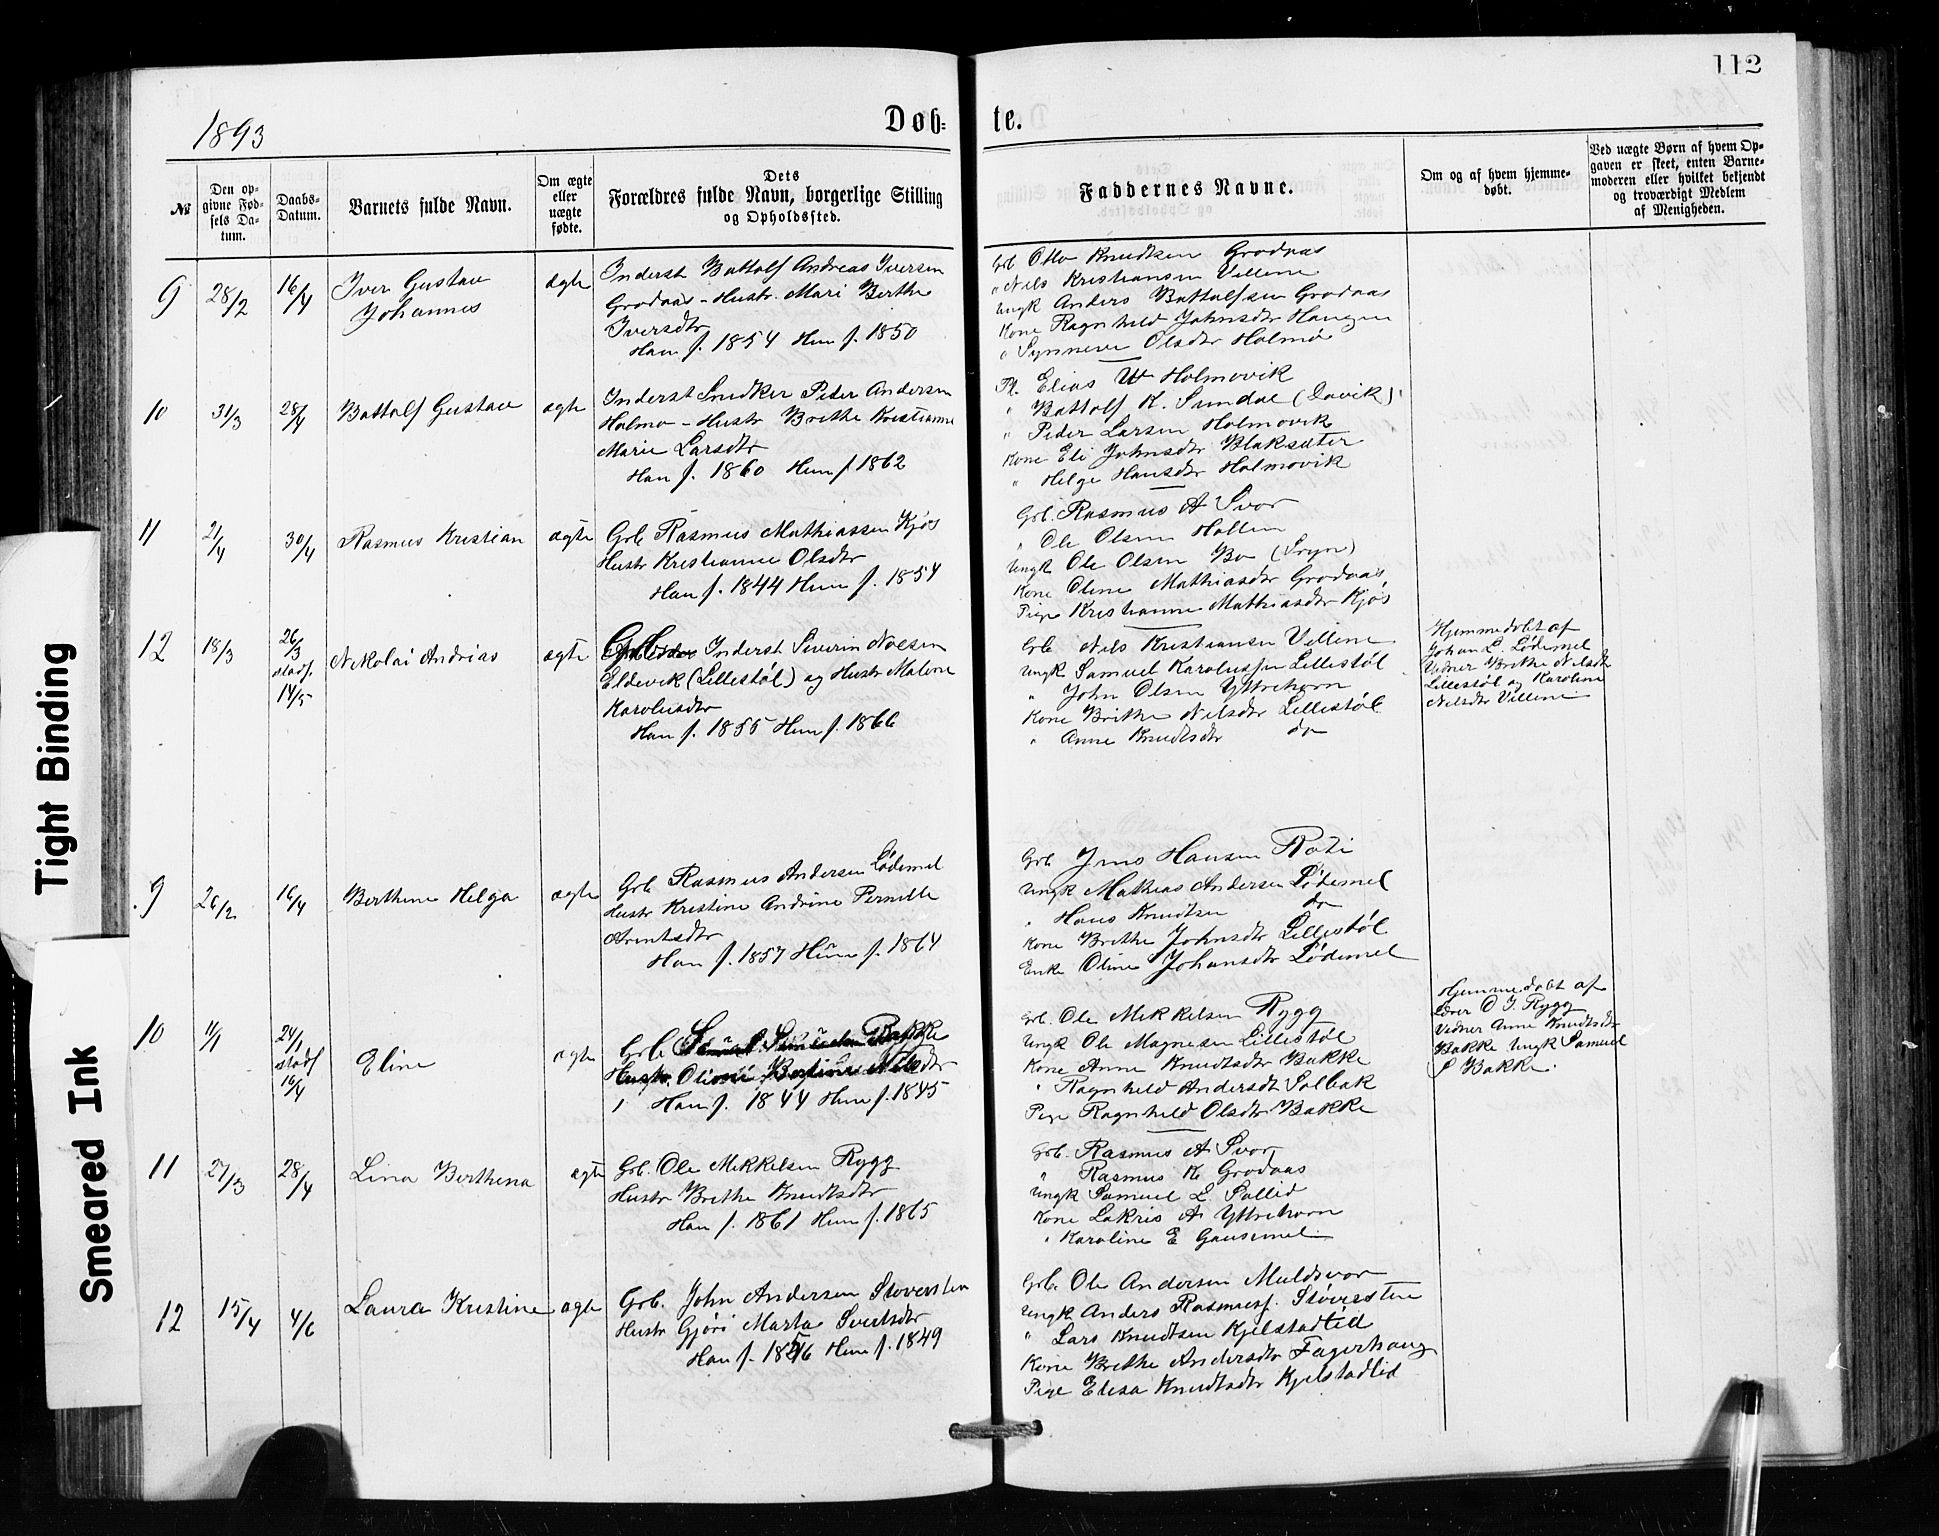 112
1893
Døb-
te.
№
Den op-
givne Fød-
sels Da-
tum.
Daabs-
Datum.
Barnets fulde Navn.
Om ægte
eller
uægte
fødte.
Dets
Forældres fulde Navn, borgerlige Stilling
og Opholdssted.
Faddernes Navne.
Om og af hvem hjemme-
døbt.
Ved uægte Børn af hvem Op-
gaven er skeet, enten Barne-
moderen eller hvilket bekjendt
og troværdigt Medlem
af Menigheden.
9
28/2
16/4
Iver Gustav
Johannes
ægte
Inderst Battolf Andreas Iversen
Grodaas - Hustr. Mari Berthe
Iversdtr
Han f. 1854 Hun f. 1850
Grb Otto Knudtsen Grodaas
" Nils Kristiansen Vellene
Ungk Anders Battolfsen Grodaas
Kone Ragnhild Johnsdtr Haugen
" Synneve Olsdtr Holmø
10
31/3
28/4
Battolf Gustav
ægte
Inderst Snedker Peder Andersen
Holmø - Hustr Brithe Kristianne
Marie Larsdtr
Han f. 1860 Hun f 1862
Pl. Elias W Holmøvik
" Battolf K. Sundal (Davik)
" Peder Larsen Holmøvik
Kone Eli Johnsdtr Blaksæter
" Helge Hansdtr Holmøvik
11
2/4
30/4
Rasmus Kristian
ægte
Grb Rasmus Mathiassen Kjøs
Hustr Kristianne Olsdtr
Han f. 1844 Hun f. 1854
Grb. Rasmus A Svor
" Ole Olsen Hallen
Ungk Ole Olsen Bø (Stryn)
Kone Oline Mathiasdtr Grodaas
Pige Kristianne Mathiasdtr Kjøs
12
18/3
26/3
stadf.
14/5
Nikolai Andrias
ægte
Inderst Siverin Noesen
Eldevik (Lillestøl) og Hustr Malene
Karolusdtr
Han f. 1855 Hun f. 1866
Grb Nils Kristiansen Vellene
Ungk Samuel Karolussen Lillestøl
" John Olsen Yttrehorn
Kone Brithe Nilsdtr Lillestøl
" Anne Knudtsdtr do
Hjemmedøbt af
Johan L. Lødemel
Vidner Brithe Nilsdtr
Lillestøl og Karoline
Nilsdtr Vellene
9
26/2
16/4
Berthine Helga
ægte
Grb Rasmus Andersen Lødemel
Hustr Kristine Andrine Pernille
Arentsdtr
Han f. 1857 Hun f. 1864
Grb Jens Hansen Roti
Ungk Mathias Andersen Lødemel
" Hans Knudtsen do
Kone Brithe Johnsdtr Lillestøl
Enke Oline Johansdtr Lødemel
10
11/1
24/1
stadf
16/4
Eline
ægte
Grb Samuel Samuelsen Bakke
Hustr. Oline Bertine Nilsdtr
Han f. 1844 Hun f. 1845
Grb. Ole Mikkelsen Rygg
Ungk Ole Magnesen Lillestøl
Kone Anne Knudtsdtr Bakke
" Ragnhild Andersdt Solbak
Pige Ragnhild Olsdtr Bakke
Hjemmedøbt af
Lærer O J Rygg
Vidner Anne Knudtsdtr
Bakke Ungk Samuel
S Bakke.
11
27/3
28/4
Lina Berthina
ægte
Grb. Ole Mikkelsen Rygg
Hustr Brithe Knudtsdtr
Han f. 1861 Hun f. 1865
Grb. Rasmus A Svor
" Rasmus K Grodaas
Ungk Samuel L. Sallid
Kone Lakris A Yttrehorn
" Karoline E Gausemel
12
15/4
4/6
Laura Kristine
ægte
Grb. John Andersen Støversten
Hustr Gjøri Marta Sivertsdtr
Han f. 1846 Hun f. 1849
Grb. Ole Andersen Muldsvor
Ungk Anders Rasmusf. Støversten
" Lars Knudtsen Kjelstadlid
Kone Brithe Andersdtr Fagerhaug
Pige Elisa Knudtsdtr Kjelstadlid
Tight Binding
Smeared Ink